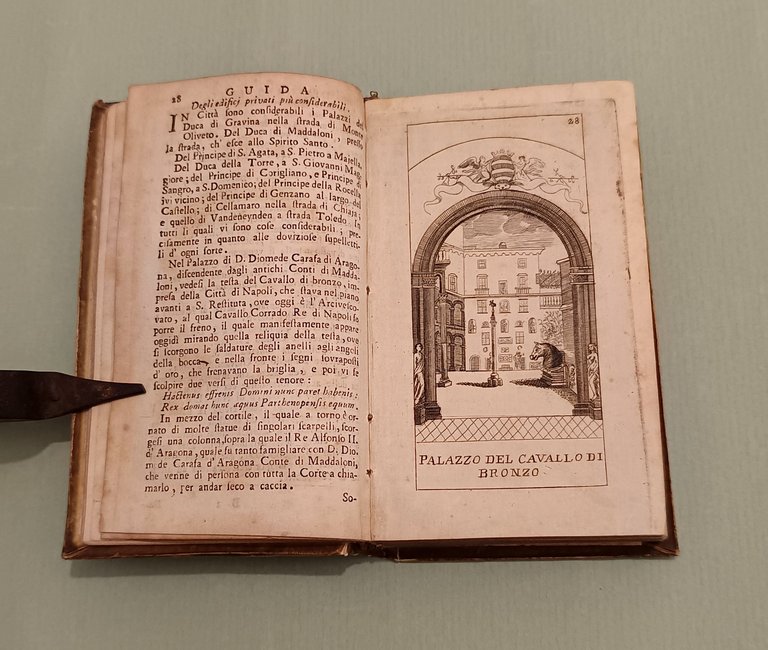 28 GUIDA
Degli edificj privati più considerabili.
IN Città sono considerabili i Palazzi del
Duca di Gravina nella strada di Monte
Oliveto. Del Duca di Maddaloni, presso
la strada, ch' esce allo Spirito Santo.
Del Principe di S. Agata, a S. Pietro a Majella.
Del Duca della Torre, a S. Giovanni Mag-
giore; del Principe di Corigliano, e Principe di
Sangro, a S. Domenico; del Principe della Rocella
ivi vicino; del Principe di Genzano al largo del
Castello; di Cellamaro nella strada di Chiaja;
e quello di Vandeneynden a strada Toledo. In
tutti li quali vi sono cose considerabili; pre-
cisamente in quanto alle doviziose supelletti-
li d' ogni sorte.
Nel Palazzo di D. Diomede Carafa di Arago-
na, discendente dagli antichi Conti di Madda-
loni, vedesi la testa del Cavallo di bronzo, im-
presa della Città di Napoli, che stava nel piano
avanti a S. Restituta, ove oggi è l'Arcivesco-
vato, al qual Cavallo Corrado Re di Napoli fo
porre il freno, il quale manifestamente appare
oggidì mirando quella reliquia della testa, ove
si scorgono le saldature degli anelli agli angoli
della bocca, e nella fronte i segni sovraposti
d' oro, che frenavano la briglia, e poi vi fe
scolpire due versi di questo tenore:
Hactenus effrenis Domini nunc paret habenis:
Rex domat hunc æquus Parthenopensis equum.
In mezzo del cortile, il quale a torno è or-
nato di molte statue di singolari scarpelli, scor-
gesi una colonna, sopra la quale il Re Alfonso II.
d' Aragona, quale fu tanto famigliare con D. Dio-
mede Carafa d'Aragona Conte di Maddaloni,
che venne di persona con tutta la Corte a chia-
marlo, per andar seco a caccia.
So-
28
PALAZZO DEL CAVALLO DI
BRONZO